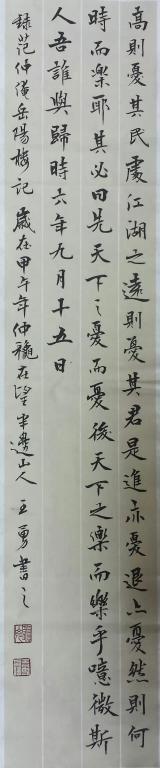 高則憂其民處江湖之遠則憂其君是進亦憂退亦憂然則何
時而樂耶其必曰先天下之憂而憂後天下之樂而樂乎噫微斯
人吾誰與歸時六年九月十五日
錄范仲淹岳陽樓記 歲在甲午年仲穐在望半邊山人王勇書之